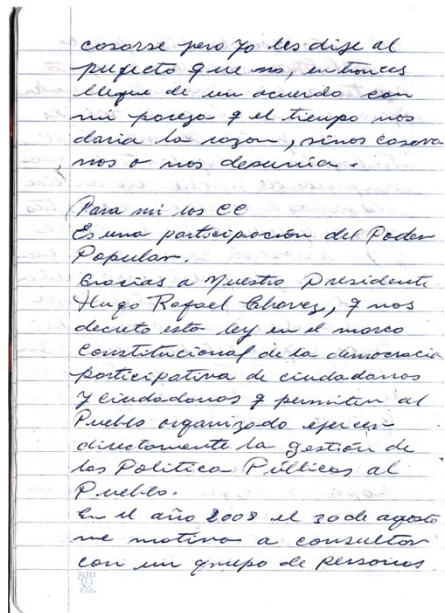 casarse pero yo les dije al
prefecto que no, entonces
llegue de un acuerdo con
mi pareja q el tiempo nos
daria la razon, sinos casava
nos o nos desunia.
Para mi los CC
Es una participación del Poder
Popular.
Gracias a Nuestro Presidente
Hugo Rafael Chavez, q nos
decreto esta ley en el marco
Constitucional de la democracia
participativa de ciudadanas
y ciudadanos q permiten al
Pueblo organizado ejercer
directamente la gestión de
las Politica Públicas al
Pueblo.
En el año 2008 el 30 de agosto
me motivo a consultar
con un grupo de personas
ALPES